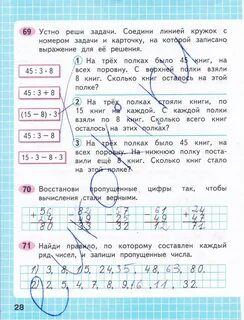 69 Устно реши задачи. Соедини линией кружок с
номером задачи и карточку, на которой записано
выражение для её решения.
45 : 3 · 8
45 : 3 + 8
(15 − 8) · 3
45 : 3 − 8
15 · 3 − 8 · 3
1 На трёх полках было 45 книг, на
всех поровну. С верхней полки взяли
8 книг. Сколько книг осталось на этой
полке?
2 На трёх полках стояли книги, по
15 книг на каждой. С каждой полки
взяли по 8 книг. Сколько всего книг
осталось на этих полках?
3 На трёх полках было 45 книг, на
всех поровну. На нижнюю полку поста-
вили ещё 8 книг. Сколько книг стало
на этой полке?
70 Восстанови пропущенные цифры так, чтобы
вычисления стали верными.
80 33 32 72 71
71 Найди правило, по которому составлен каждый
ряд чисел, и запиши пропущенные числа.
1) 3, 8, 15, 24, 35, 48, 63, 80.
2) 2, 5, 4, 7, 8, 9, 16, 11, 32.
28